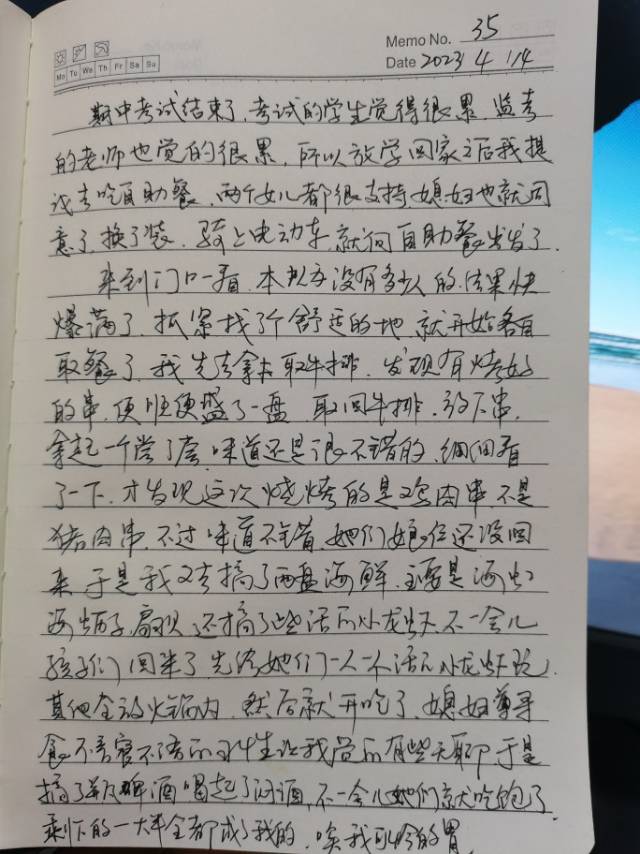 Memo No. 35
Mo Tu We Th Fr Sa Su
Date 2023 4 14
期中考试结束了,考试的学生觉得很累,监考
的老师也觉的很累,所以放学回家之后我提
议去吃自助餐,两个女儿都很支持,媳妇也就同
意了,换了装,骑上电动车,就向自助餐出发了.
来到门口一看,本以为没有多少人的,结果快
爆满了,抓紧找了个舒适的地,就开始各自
取餐了,我先去拿卡取牛排,发现有烤好
的串,便顺便盛了一盘,取回牛排,放下串,
拿起一个尝了尝,味道还是很不错的,细细看
了一下,才发现这次烧烤的是鸡肉串,不是
猪肉串,不过味道不错,她们娘仨还没回
来,于是我又去搞了两盘海鲜,主要是海虹
海蛎子,扇贝,还搞了些活的小龙虾,不一会儿
孩子们回来了,先给她们一人一个活的小龙虾玩,
其他全放火锅内,然后就开吃了,媳妇尊寻
食不言寝不语的让我觉的有些无聊,于是
搞了瓶啤酒喝起了闷酒,不一会儿她们就吃饱了,
剩下的一大半全都成了我的,唉我可怜的胃.